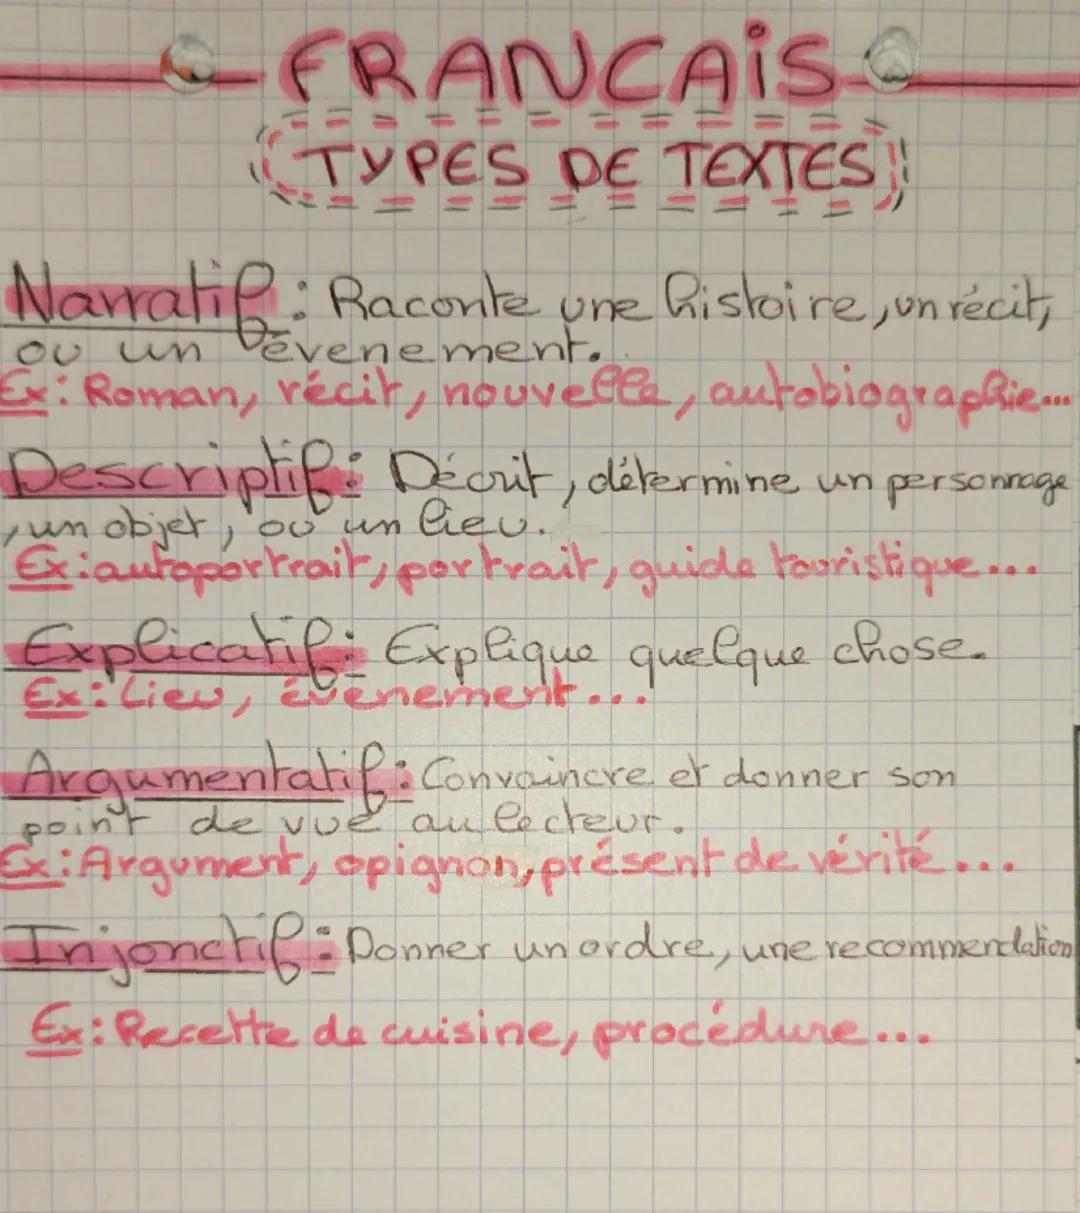 FRANCAIS
TYPES DE TEXTES
Narratif : Raconte une histoire, un récit,
ou un évenement.
Ex : Roman, récit, nouvelle, autobiographie...
Descriptif : Décrit, détermine un personnage
, un objet, ou un lieu.
Ex : autoportrait, portrait, guide touristique...
Explicatif : Explique quelque chose.
Ex : Lieu, évenement...
Argumentatif : Convaincre et donner son
point de vue au lecteur.
Ex : Argument, opignon, présent de vérité...
Injonctif : Donner un ordre, une recommendation
Ex : Recette de cuisine, procédure...